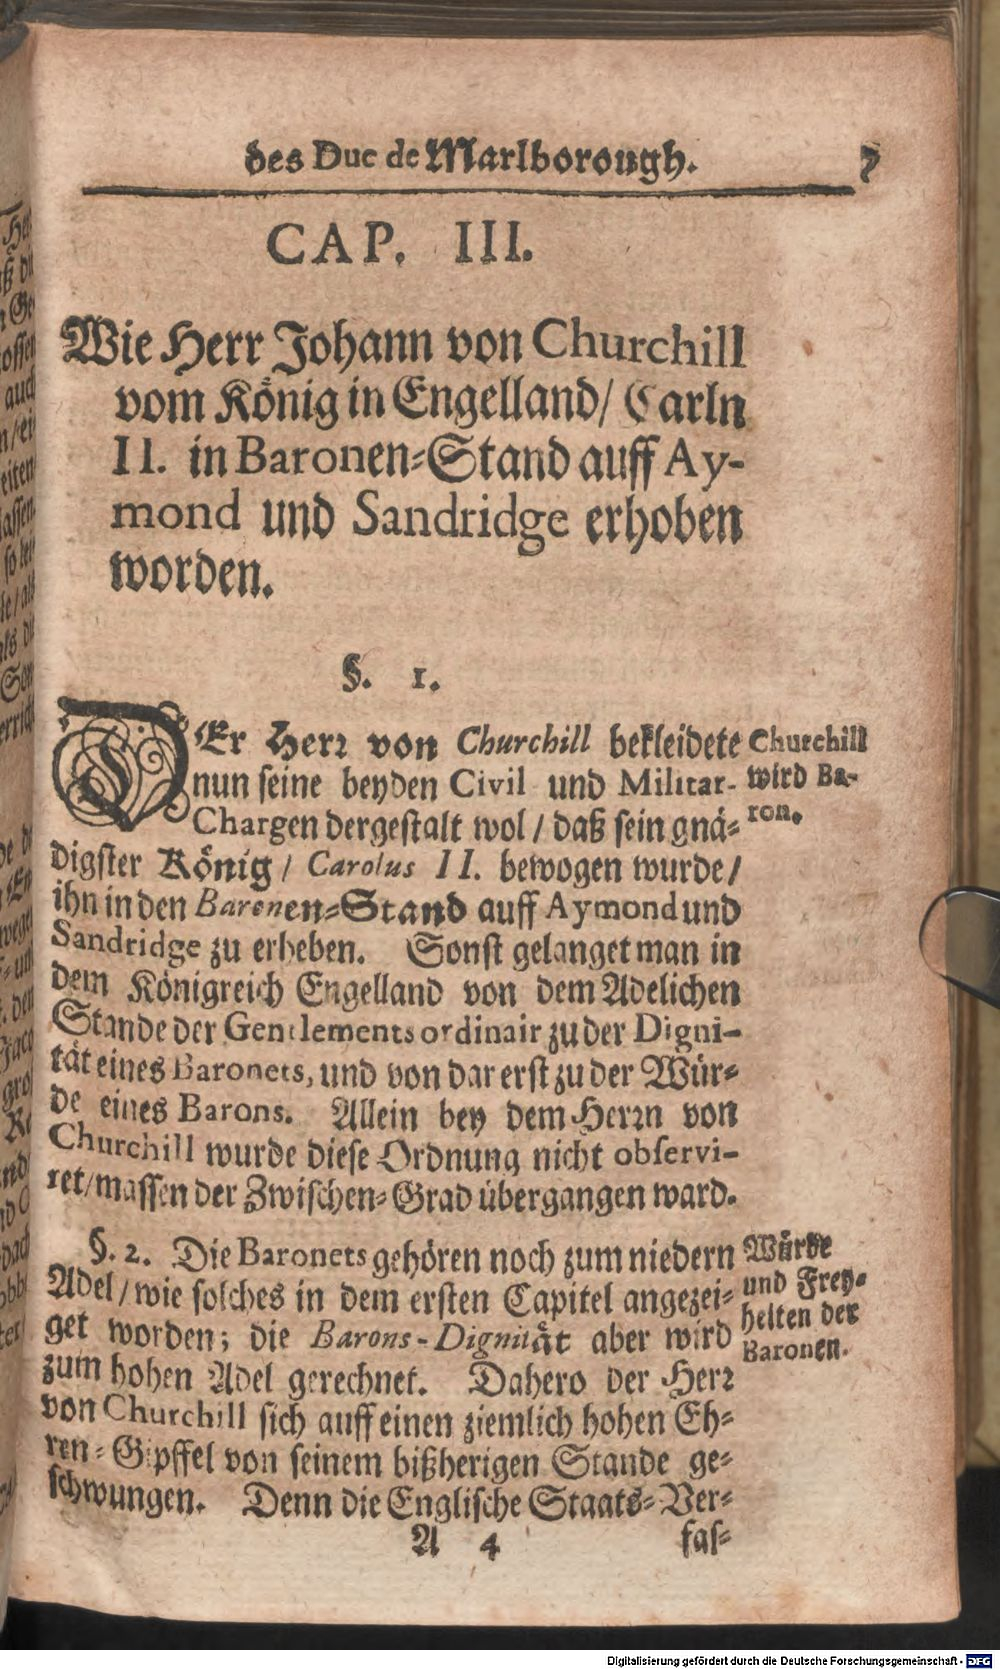 des Duc de Marlborough. 7
CAP. III.
Wie Herr Johann von Churchill
vom König in Engelland/ Carln
II. in Baronen-Stand auff Ay-
mond und Sandridge erhoben
worden.
§. 1.
DEr Herr von Churchill bekleidete
nun seine beyden Civil und Militar-
Chargen dergestalt wol / daß sein gnä-
digster König / Carolus II. bewogen wurde /
ihn in den Baronen-Stand auff Aymond und
Sandridge zu erheben. Sonst gelanget man in
dem Königreich Engelland von dem Adelichen
Stande der Gentlements ordinair zu der Digni-
tät eines Baronets, und von dar erst zu der Wür-
de eines Barons. Allein bey dem Herrn von
Churchill wurde diese Ordnung nicht observi-
ret / massen der Zwischen-Grad übergangen ward.
Churchill
wird Ba-
ron.
§. 2. Die Baronets gehören noch zum niedern
Adel / wie solches in dem ersten Capitel angezei-
get worden; die Barons-Dignität aber wird
zum hohen Adel gerechnet. Dahero der Herr
von Churchill sich auff einen ziemlich hohen Eh-
ren-Gipffel von seinem bißherigen Stande ge-
schwungen. Denn die Englische Staats-Ver-
Würde
und Frey-
heiten der
Baronen.
A 4 fas-
Digitalisierung gefördert durch die Deutsche Forschungsgemeinschaft - DFG